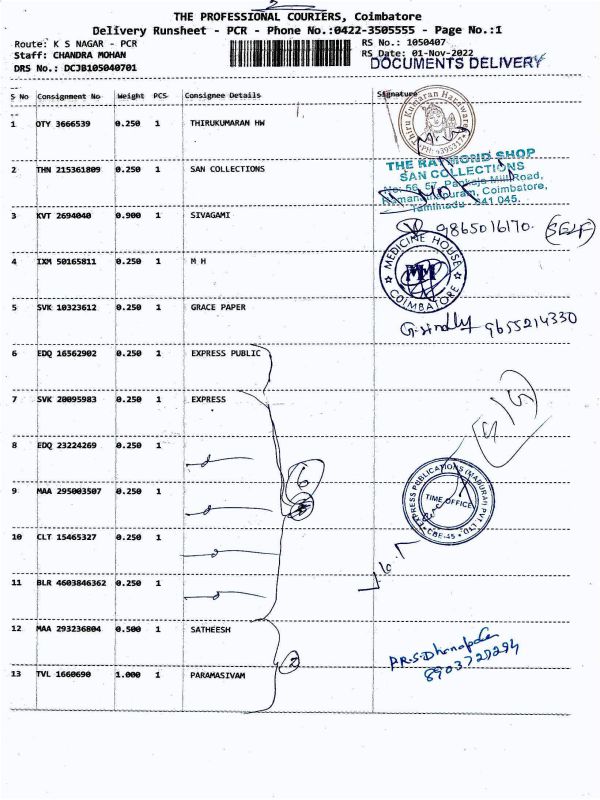 THE PROFESSIONAL COURIERS, Coimbatore
Delivery Runsheet - PCR - Phone No.:0422-3505555 - Page No.:1
Route: K S NAGAR - PCR RS No.: 1050407
Staff: CHANDRA MOHAN RS Date: 01-Nov-2022
DRS No.: DCJB105040701 DOCUMENTS DELIVERY
S No Consignment No Weight PCS Consignee Details Signature
1 OTY 3666539 0.250 1 THIRUKUMARAN HW
2 THN 215361809 0.250 1 SAN COLLECTIONS
THE RAYMOND SHOP
SAN COLLECTIONS
No: 56, 57, Pankaja Mill Road,
Ramanathapuram, Coimbatore,
Tamilnadu - 641 045.
3 KVT 2694040 0.900 1 SIVAGAMI
9865016170. (SELF)
4 IXM 50165811 0.250 1 M H
MEDICINE HOUSE
MH
COIMBATORE
5 SVK 10323612 0.250 1 GRACE PAPER
9655214330
6 EDQ 16562902 0.250 1 EXPRESS PUBLIC
7 SVK 20095983 0.250 1 EXPRESS
8 EDQ 23224269 0.250 1
6
9 MAA 295003507 0.250 1
EXPRESS PUBLICATIONS (MADURAI) PVT LTD
TIME OFFICE
CBE-45
10 CLT 15465327 0.250 1
11 BLR 4603846362 0.250 1
12 MAA 293236804 0.500 1 SATHEESH
2
8903729294
13 TVL 1660690 1.000 1 PARAMASIVAM